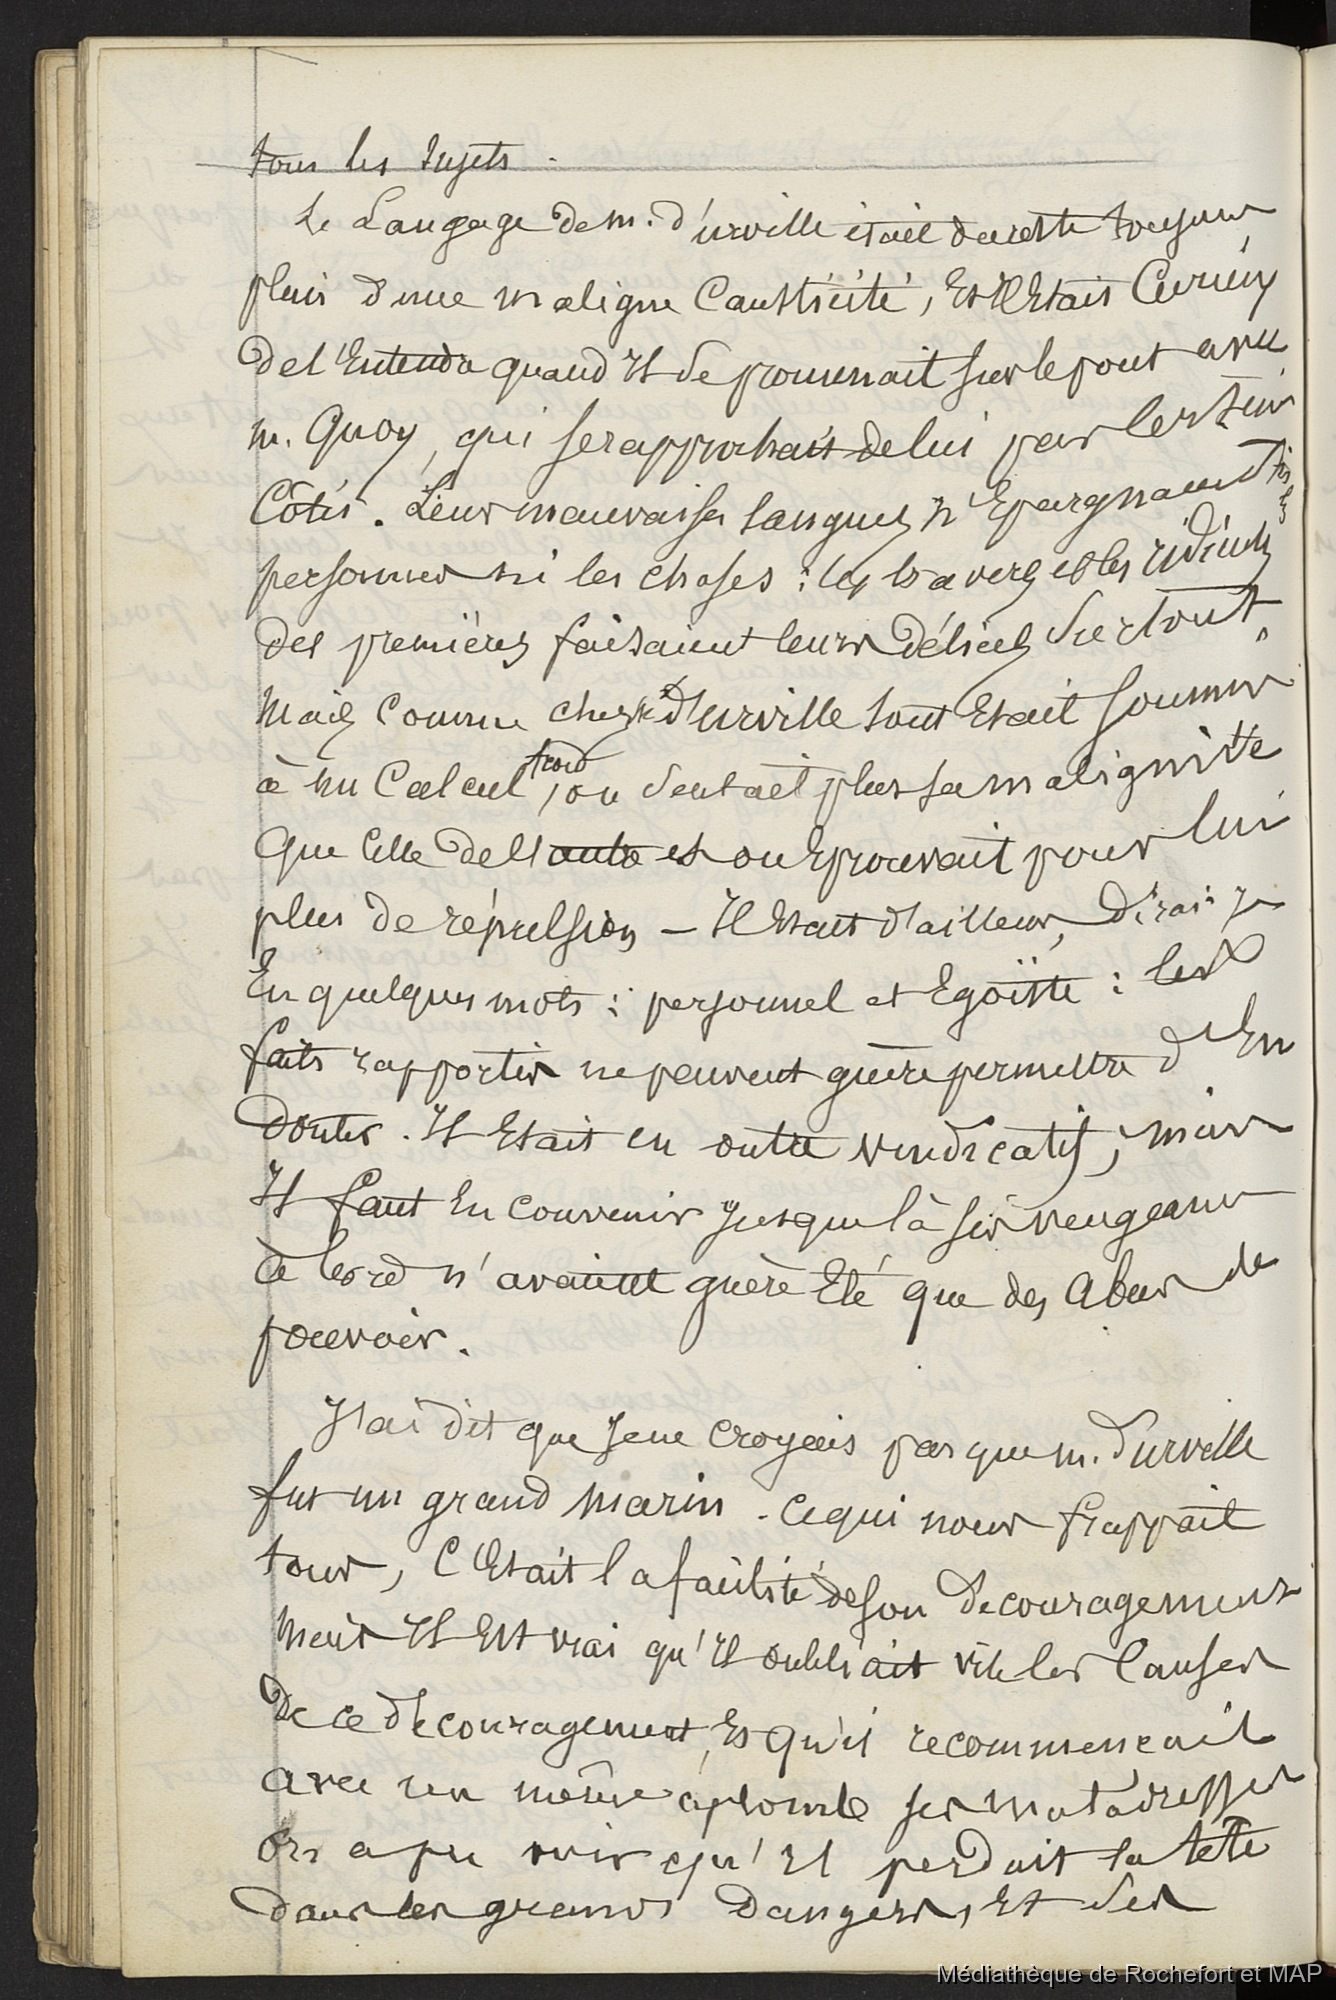 tous les sujets.
Le Langage de m. d'urville était dureste toujours
plein d'une maligne Causticité, Et Il Etais Curieux
de l'Entendre quand Il se promenait sur le pont avec
m. Quoy, qui se rapprochait de lui par certains
Cotés. Leurs mauvaises langues n'Epargnaient ni les
personnes ni les choses : les travers et les ridicules
des premières faisaient leurs Délices surtout.
Mais Comme chez d'urville tout Etait soumis
à un Calcul froid, on sentait plus sa malignitte
Que Celle de l'autre et on Eprouvait pour lui
plus de répulsion — Il Etait d'ailleurs, Dirai-je
En quelques mots : personnel et Egoïste : les
faits rapportés ne peuvent guère permettre d'En
douter. Il Etait en outre vindicatif, mais
Il faut En convenir jusque là ses vengeances
à bord n'avaient guère Eté que des Abus de
pouvoir.
J'ai dit que je ne croyais pas que m. d'urville
fut un grand marin. Ce qui nous frappait
tous, C'Etait la facilité de son Découragement
Mais Il Est vrai qu'Il oubliait vite les Causes
De ce découragement, Et qu'il recommencait
avec un même aplomb ses maladresses
On a pu voir qu'Il perdait la tête
dans les grands Dangers, Et ses
Médiathèque de Rochefort et MAP